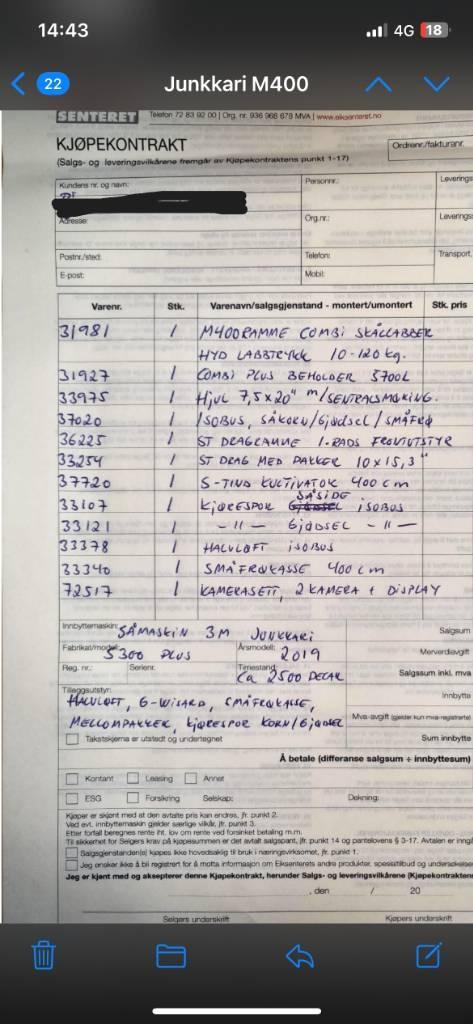 14:43
4G 18
22
Junkkari M400
SENTERET
Telefon 72 83 92 00 | Org. nr. 936 966 678 MVA | www.eiksenteret.no
KJØPEKONTRAKT
Ordrenr./fakturanr.
(Salgs- og leveringsvilkårene fremgår av Kjøpekontraktens punkt 1-17)
Kundens nr. og navn: Personnr.: Leverings
Adresse: Org.nr.: Leverings
Postnr./sted: Telefon: Transport.
E-post: Mobil:
Varenr. Stk. Varenavn/salgsgjenstand - montert/umontert Stk. pris
31981 1 M400 RAMME COMBI SKÅLLABBER
HYD LABBTRYKK 10-120 kg.
31927 1 COMBI PLUS BEHOLDER 3700L
33975 1 HJUL 7,5x20" m/SENTRALSMØRING.
37020 1 ISOBUS, SÅKORN/GJØDSEL/SMÅFRØ
36225 1 ST DRAGRAMME 1-RADS FRONTUTSTYR
33254 1 ST DRAG MED PAKKER 10x15,3"
37720 1 S-TIND KULTIVATOR 400 cm
SÅSIDE
33107 1 KJØRESPOR GJØDSEL ISOBUS
33121 1 -"- GJØDSEL -"-
33378 1 HALVLØFT ISOBUS
33340 1 SMÅFRØKASSE 400 cm
72517 1 KAMERASETT, 2 KAMERA + DISPLAY
Innbyttemaskin: SÅMASKIN 3M JUNKKARI Salgsum
Fabrikat/modell: S300 PLUS Årsmodell: 2019 Merverdiavgift
Reg. nr.: Serienr. Timestand: Ca 2500 DEKAR Salgssum inkl. mva
Tilleggsutstyr: Innbytte
HALVLØFT, G-WIZARD, SMÅFRØKASSE,
MELLOMPAKKER, KJØRESPOR KORN/GJØDSEL Mva-avgift (gjelder kun mva-registrert
Takstskjema er utstedt og undertegnet Sum innbytte
Å betale (differanse salgsum ÷ innbyttesum)
Kontant Leasing Annet
ESG Forsikring Selskap: Dekning:
Kjøper er skjent med at den avtalte pris kan endres, jfr. punkt 2.
Ved evt. innbyttemaskin gjelder særlige vilkår, jfr. punkt 3.
Etter forfall beregnes rente iht. lov om rente ved forsinket betaling m.m.
Til sikkerhet for Selgers krav på kjøpesummen er det avtalt salgspant, jfr. punkt 14 og pantelovens § 3-17. Avtalen er inngå
Salgsgjenstanden(e) kjøpes ikke hovedsaklig til bruk i næringsvirksomhet, jfr. punkt 1.
Jeg ønsker ikke å bli registrert for å motta informasjon om Eiksenterets andre produkter, spesialtilbud og undersøkelse
Jeg er kjent med og aksepterer denne Kjøpekontrakt, herunder Salgs- og leveringsvilkårene (Kjøpekontrakten
, den / 20
Selgers underskrift Kjøpers underskrift